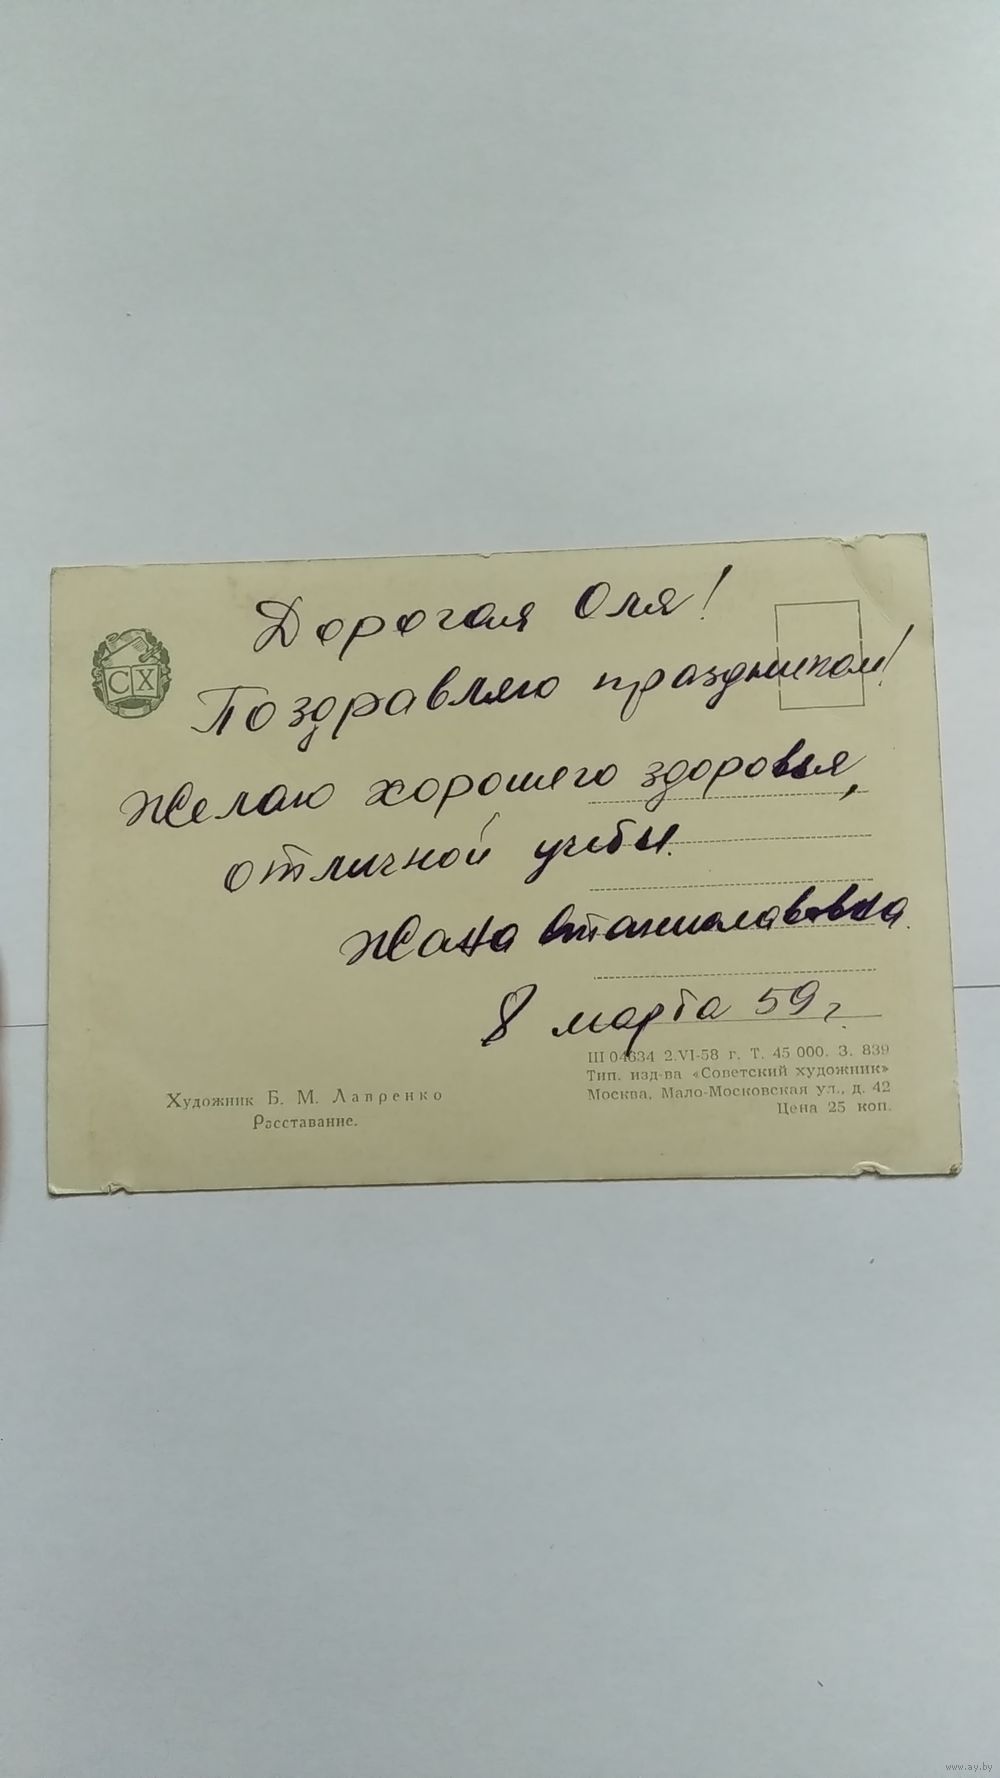 Дорогая Оля!
Поздравляю праздником!
Желаю хорошего здоровья,
отличной учебы.
Жана Станиславовна.
8 марта 59 г.
СХ
Художник Б. М. Лавренко
Расставание.
Ш 04634 2.VI-58 г. Т. 45 000. З. 839
Тип. изд-ва «Советский художник»
Москва, Мало-Московская ул., д. 42
Цена 25 коп.
www.ay.by